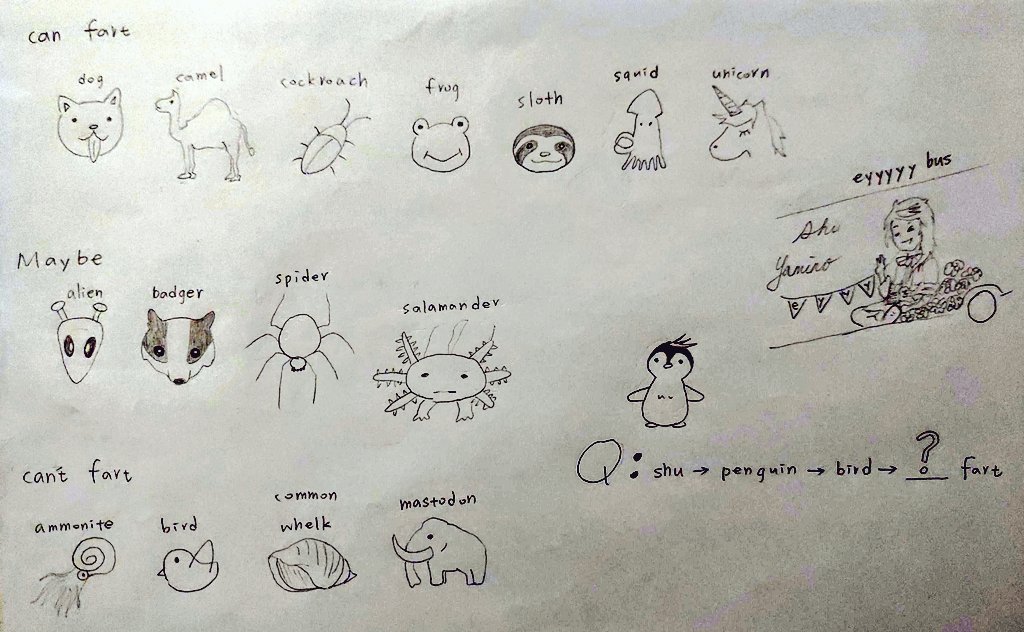 can fart
dog camel cockroach frog sloth squid unicorn
eyyyyy bus
Shu
Yamino
e y y y
Maybe
alien badger spider salamander
can't fart
ammonite bird common whelk mastodon
Q: shu → penguin → bird → ? fart